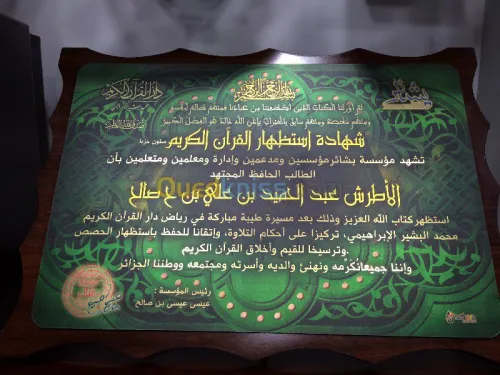 بسم الله الرحمن الرحيم
دار القرآن الكريم
بشائر
ثم أورثنا الكتاب الذين اصطفينا من عبادنا فمنهم ظالم لنفسه
ومنهم مقتصد ومنهم سابق بالخيرات بإذن الله ذلك هو الفضل الكبير
شهادة استظهار القرآن الكريم ستون حزبا
تشهد مؤسسة بشائر مؤسسين ومدعمين وإدارة ومعلمين ومتعلمين بأن
الطالب الحافظ المجتهد
الأطرش عبد الحميد بن علي بن ح صالح
استظهر كتاب الله العزيز وذلك بعد مسيرة طيبة مباركة في رياض دار القرآن الكريم
محمد البشير الإبراهيمي، تركيزا على أحكام التلاوة، وإتقانا للحفظ باستظهار الحصص
وترسيخا للقيم وأخلاق القرآن الكريم.
وإننا جميعا نكرمه ونهنئ والديه وأسرته ومجتمعه ووطننا الجزائر
رئيس المؤسسة :
عيسى عيسى بن صالح
Ouedkniss